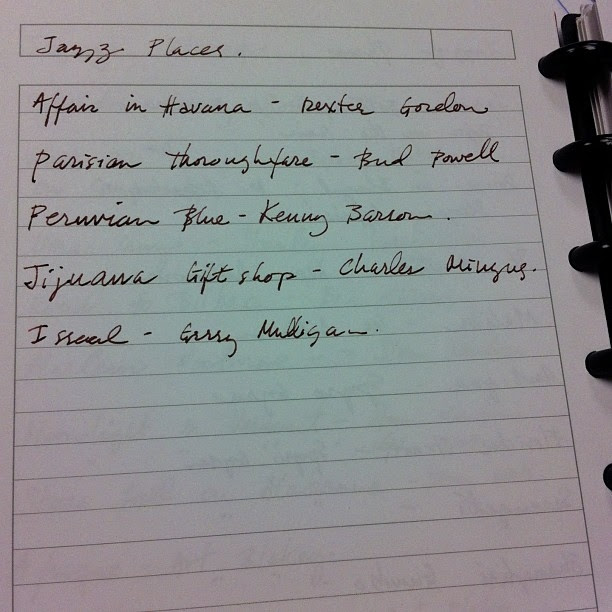 Jazz Places.
Affair in Havana - Dexter Gordon
Parisian Thoroughfare - Bud Powell
Peruvian Blue - Kenny Barron.
Tijuana Gift shop - Charles Mingus.
Israel - Gerry Mulligan.